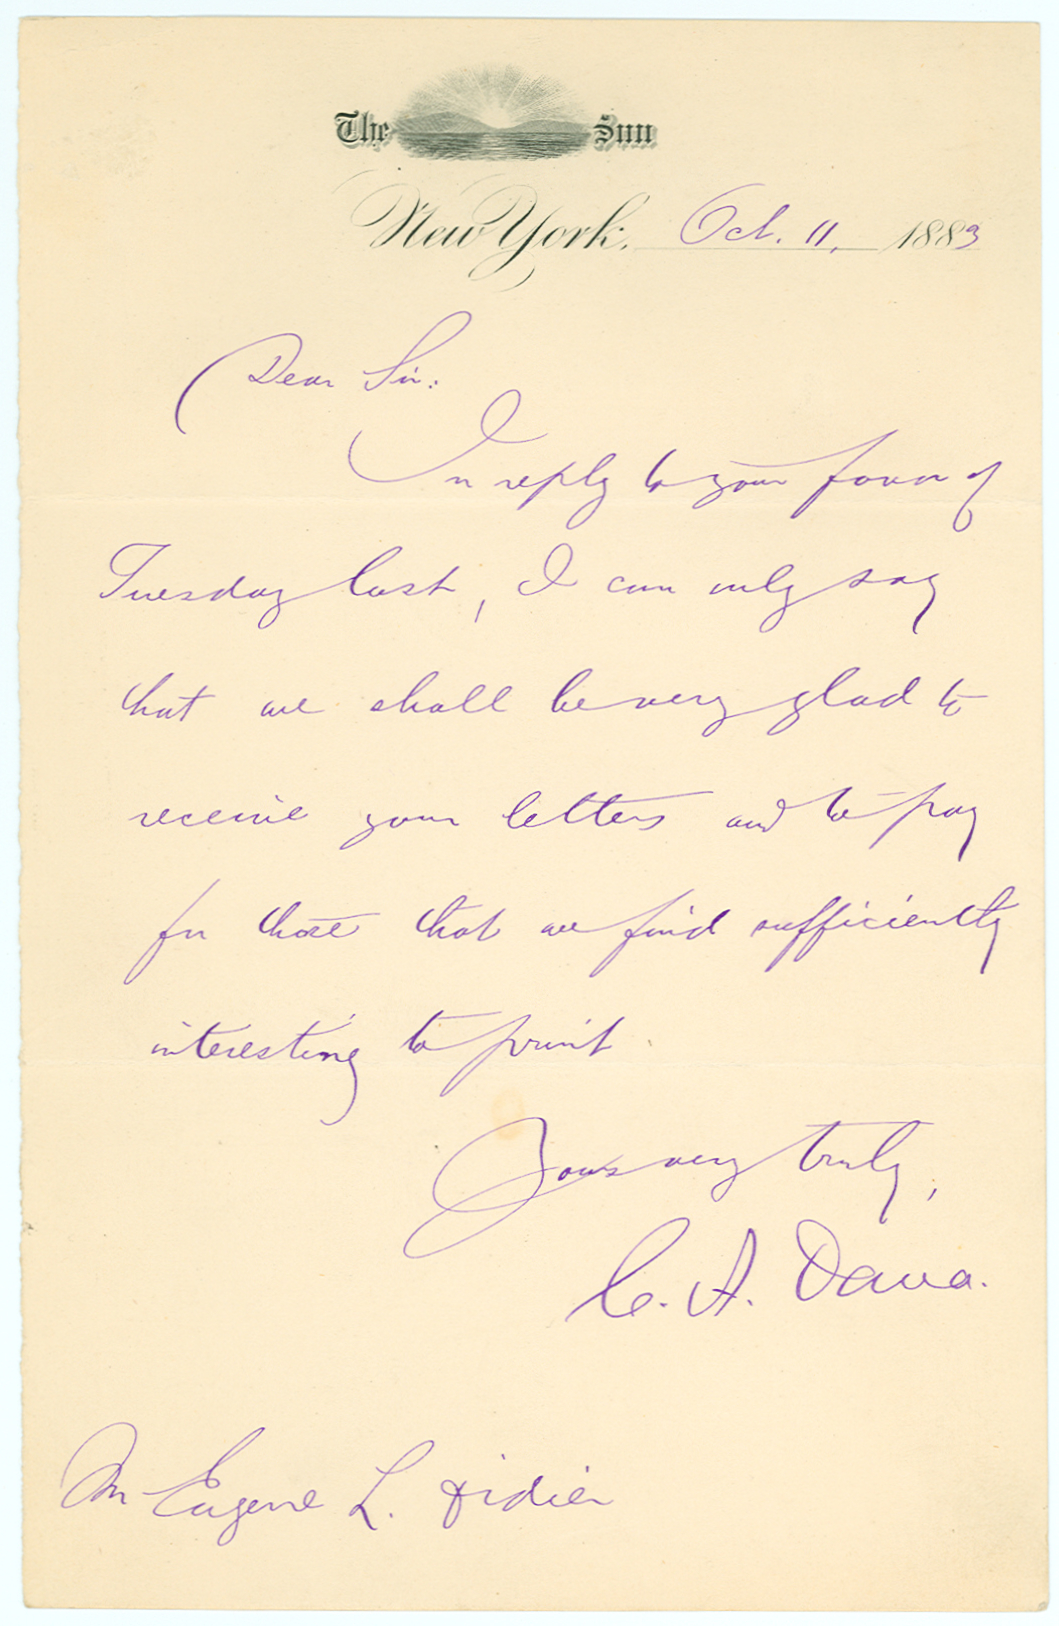 The Sun
New York, Oct. 11, 1883
Dear Sir:
In reply to your favor of
Tuesday last, I can only say
that we shall be very glad to
receive your letters and to pay
for those that we find sufficiently
interesting to print.
Yours very truly,
C. A. Dana.
Mr Eugene L. Didier